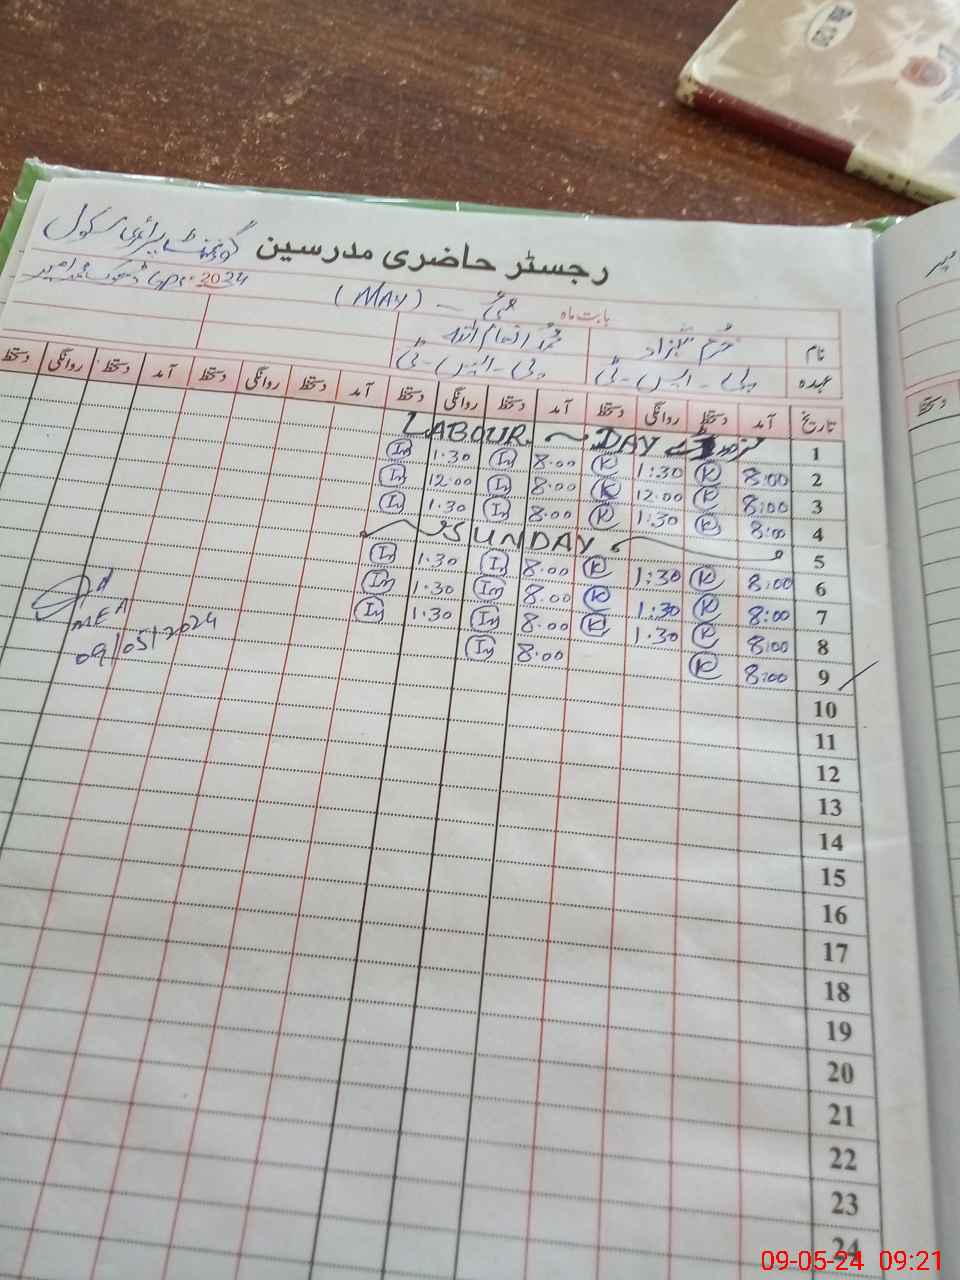 رجسٹر حاضری مدرسین گورنمنٹ پرائمری سکول
GPS 2024
بابت ماہ مئی — (MAY)
نام خرم شہزاد محمد انعام اللہ
عہدہ پی - ایس - ٹی پی - ایس - ٹی
تاریخ آمد دستخط روانگی دستخط آمد دستخط روانگی دستخط آمد دستخط روانگی دستخط آمد دستخط روانگی دستخط
1 LABOUR DAY
2 8:00 K 1:30 K 8:00 In 1:30 In
3 8:00 K 12:00 K 8:00 In 12:00 In
4 8:00 K 1:30 K 8:00 In 1:30 In
5 SUNDAY
6 8:00 K 1:30 K 8:00 In 1:30 In
7 8:00 K 1:30 K 8:00 In 1:30 In
8 8:00 K 1:30 K 8:00 In 1:30 In
9 8:00 K 8:00 In
MEA
09/05/2024
10
11
12
13
14
15
16
17
18
19
20
21
22
23
24
دستخط
09-05-24 09:21